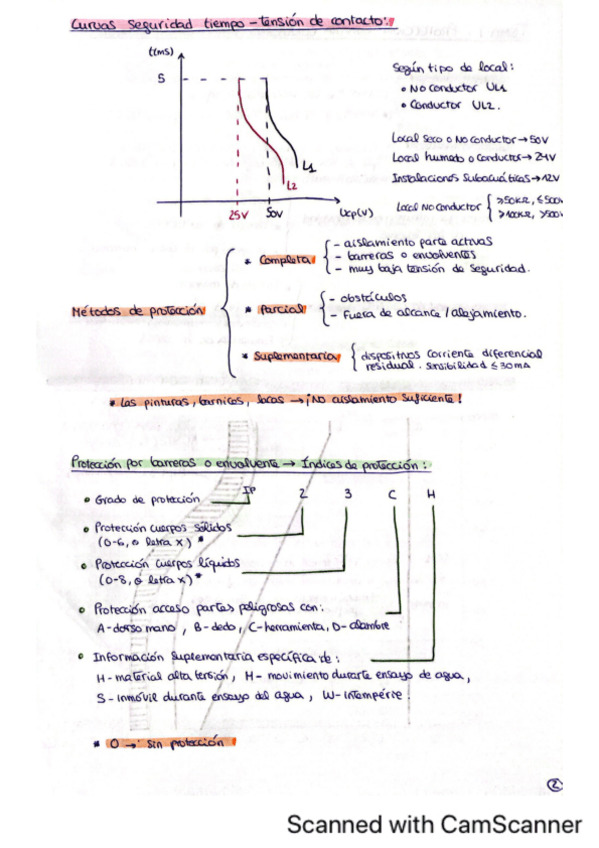 Curvas Seguridad tiempo - tensión de contacto:
t(ms)
5
L1
L2
25V
50V
Ucp(V)
Según tipo de local:
• No conductor UL1
• Conductor UL2.
Local Seco o No conductor → 50V
Local humedo o conductor → 24V
Instalaciones Subacuáticas → 12V
Local No conductor { ≥50KΩ, ≤500V
>100KΩ, >500V
Métodos de protección
* Completa
- aislamiento parte activas
- barreras o envolventes
- muy baja tensión de seguridad.
* Parcial
- obstáculos
- fuera de alcance / alejamiento.
* Suplementaria
dispositivos corriente diferencial
residual. sensibilidad ≤ 30mA
* Las pinturas, barnices, lacas → ¡No aislamiento suficiente!
Protección por barreras o envolvente → Índices de protección:
IP 2 3 C H
• Grado de protección
• Protección cuerpos sólidos
(0-6, o letra x) *
• Protección cuerpos líquidos
(0-8, o letra x) *
• Protección acceso partes peligrosas con:
A-dorso mano, B-dedo, C-herramienta, D-alambre
• Información Suplementaria específica de:
H-material alta tensión, M-movimiento durante ensayo de agua,
S-inmóvil durante ensayo del agua, W-intempérie
* 0 → Sin protección
2
Scanned with CamScanner